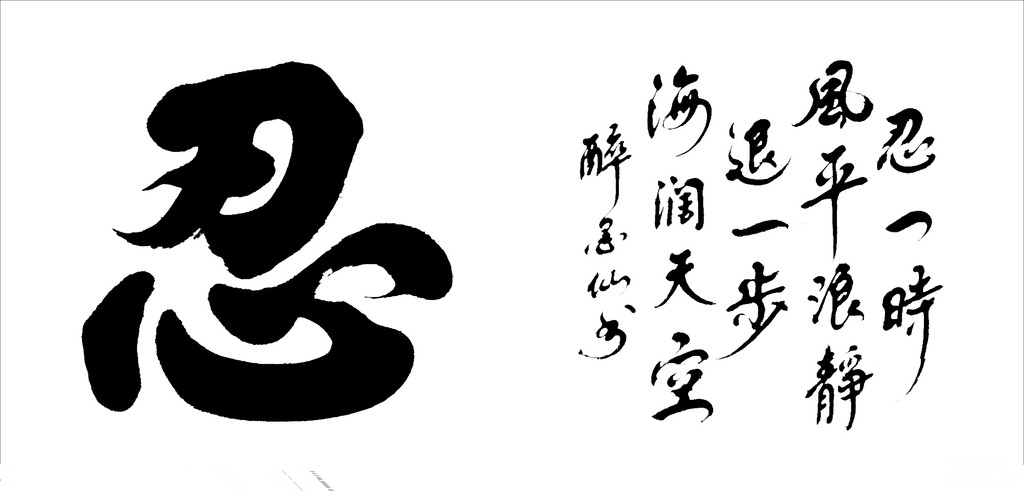 忍
忍一時
風平浪靜
退一步
海濶天空
醉墨仙书